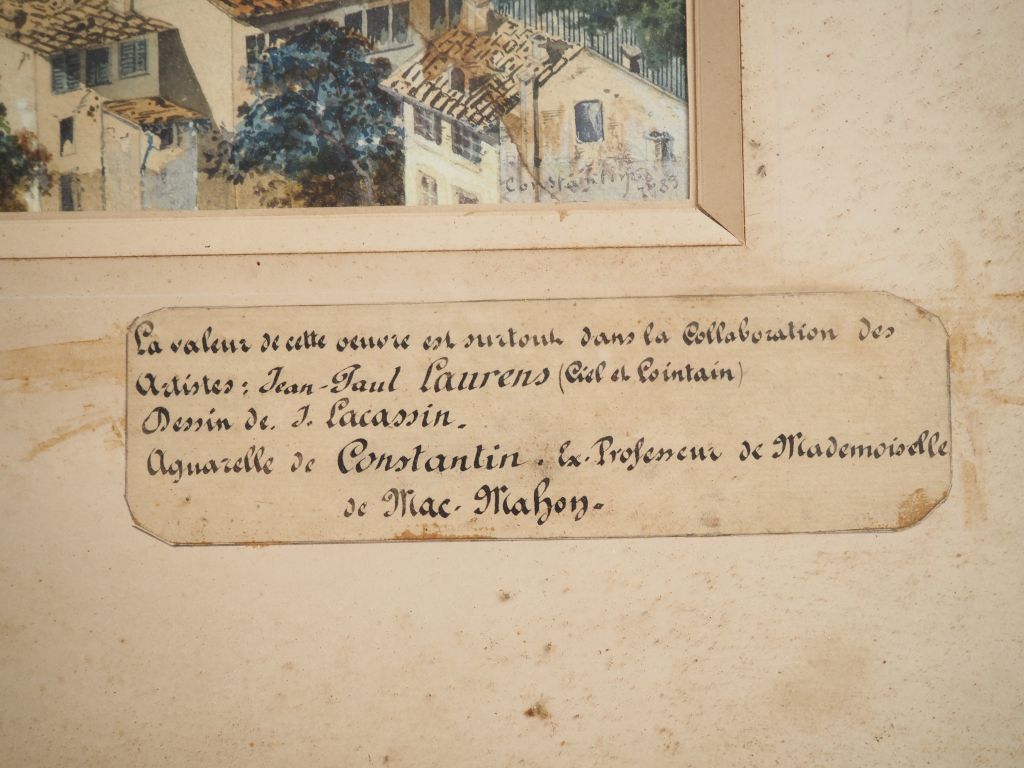 Constantin
1883
La valeur de cette oeuvre est surtout dans la Collaboration des
Artistes: Jean-Paul Laurens (Ciel et Lointain)
Dessin de J. Lacassin.
Aquarelle de Constantin. Ex-Professeur de Mademoiselle
de Mac-Mahon.